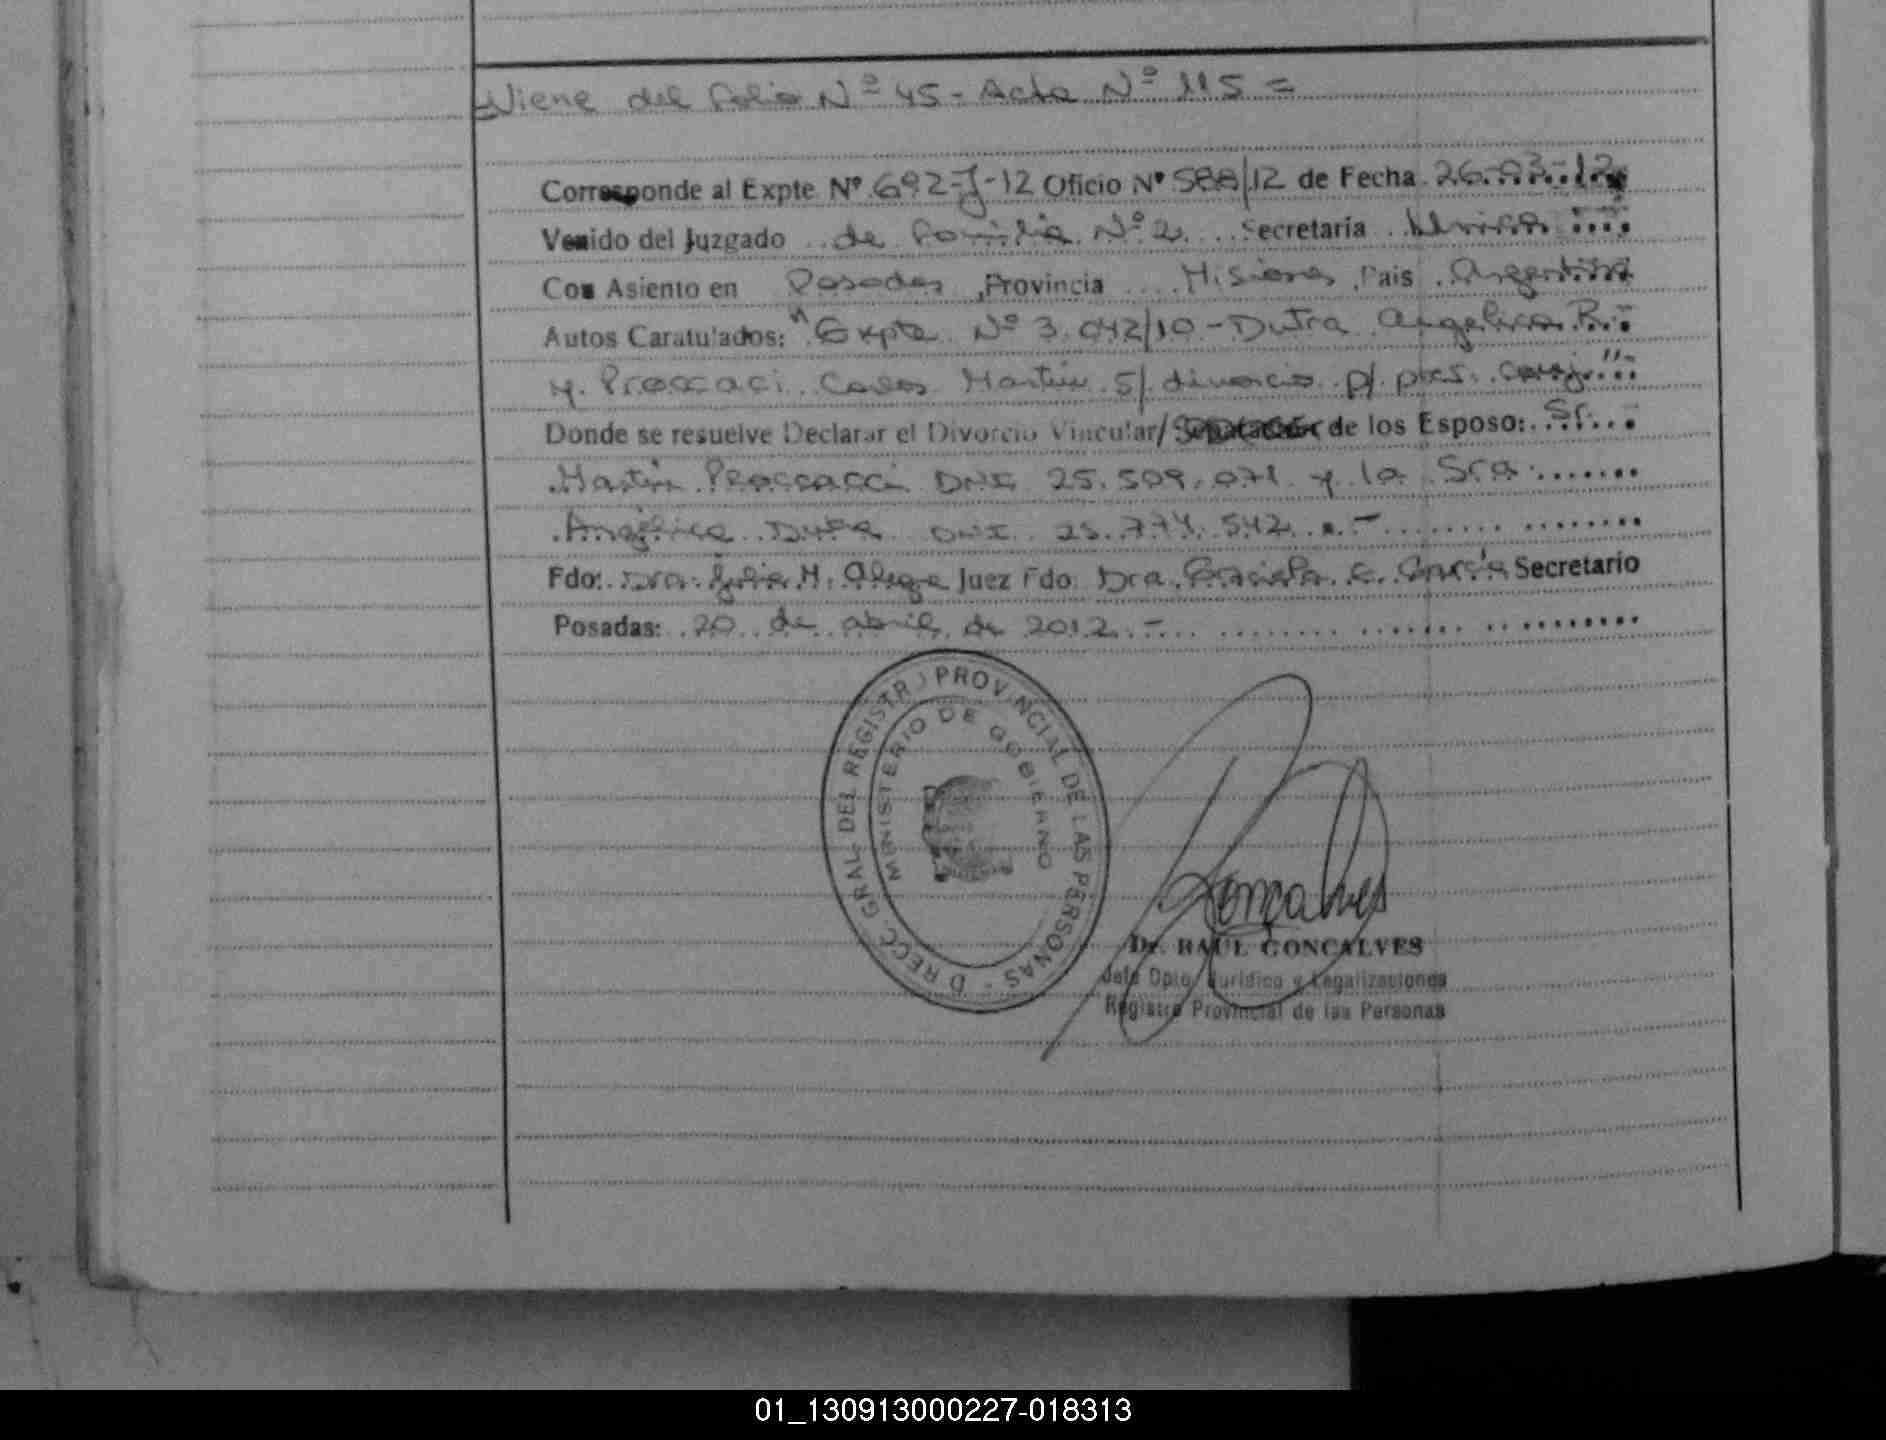 Viene del folio Nº 45 - Acta Nº 115 =
Corresponde al Expte Nº 692-J-12 Oficio Nº 588/12 de Fecha 26-03-12
Venido del Juzgado de Familia Nº 2 Secretaria Unica
Con Asiento en Posadas, Provincia Misiones, Pais Argentina
Autos Caratulados: "Expte Nº 3.042/10 - Dutra Angelica R.
y Proccaci Carlos Martin S/ divorcio p/ pres. conj."
Donde se resuelve Declarar el Divorcio Vincular/ de los Esposo: Sr.
Martin Proccacci DNI 25.509.071 y la Sra
Angélica Dutra DNI 25.774.542.-
Fdo: Dra. Julia H. Alegre Juez Fdo: Dra. Graciela C. García Secretario
Posadas: 20 de abril de 2012.-
DIRECC. GRAL. DEL REGISTRO PROVINCIAL DE LAS PERSONAS -
MINISTERIO DE GOBIERNO
Goncalves
Dr. RAUL GONCALVES
Jefe Dpto. Juridico y Legalizaciones
Registro Provincial de las Personas
01_130913000227-018313